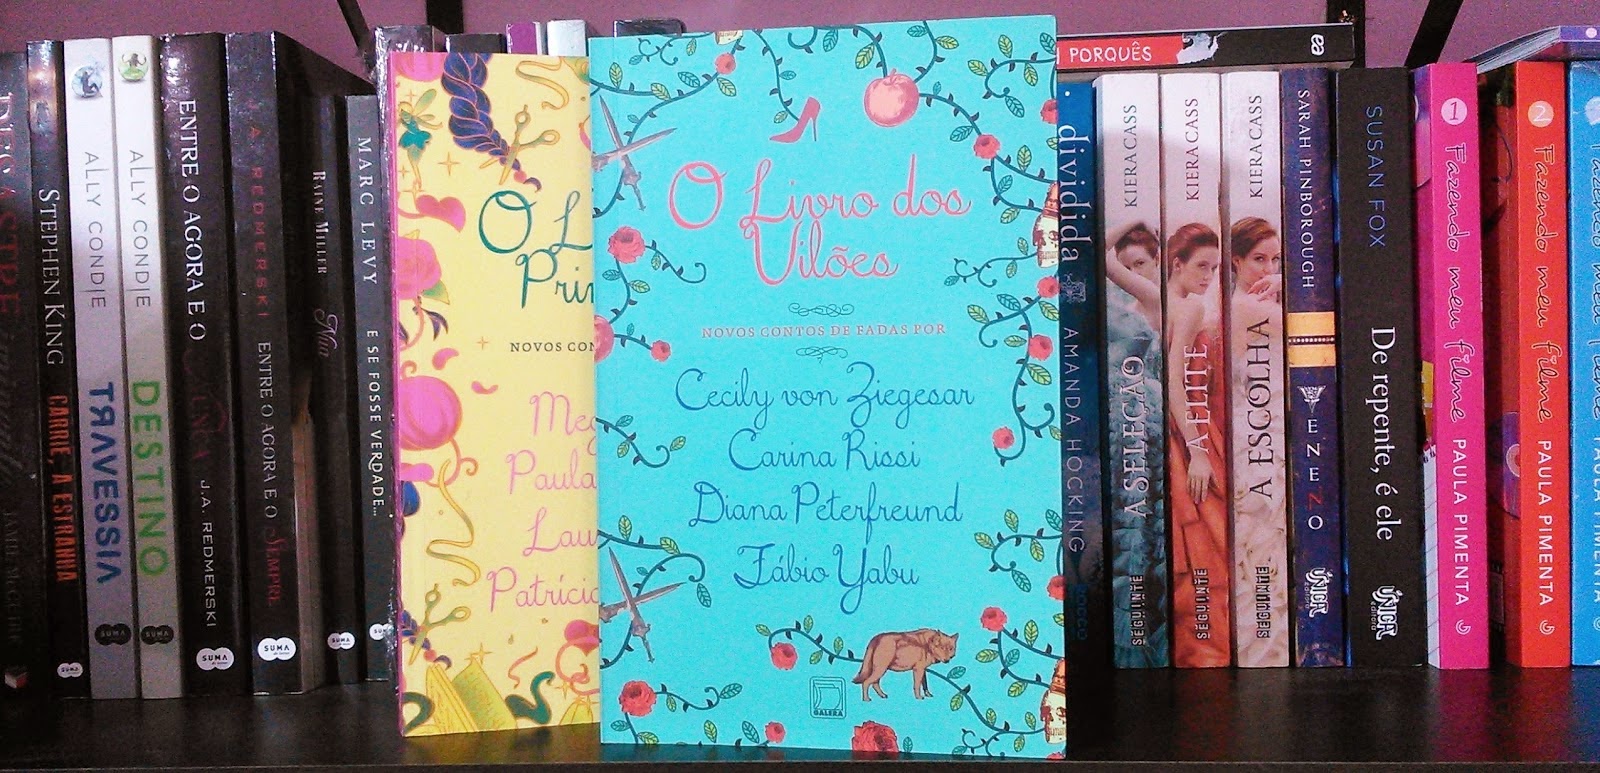 STEPHEN KING CARRIE, A ESTRANHA
ALLY CONDIE TRAVESSIA
SUMA
ALLY CONDIE DESTINO
SUMA
ENTRE O AGORA E O NUNCA J.A. REDMERSKI
SUMA
J.A. REDMERSKI ENTRE O AGORA E O SEMPRE
SUMA
MARC LEVY E SE FOSSE VERDADE...
NOVOS
Paula
O Livro dos
Vilões
NOVOS CONTOS DE FADAS POR
Cecily von Ziegesar
Carina Rissi
Diana Peterfreund
Fábio Yabu
GALERA
PORQUÊS
dividida AMANDA HOCKING
ROCCO
KIERA CASS A SELEÇÃO SEGUINTE
KIERA CASS A ELITE SEGUINTE
KIERA CASS A ESCOLHA SEGUINTE
SARAH PINBOROUGH VENENO ÚNICA
SUSAN FOX De repente, é ele ÚNICA
1 Fazendo meu filme PAULA PIMENTA
2 Fazendo meu filme PAULA PIMENTA